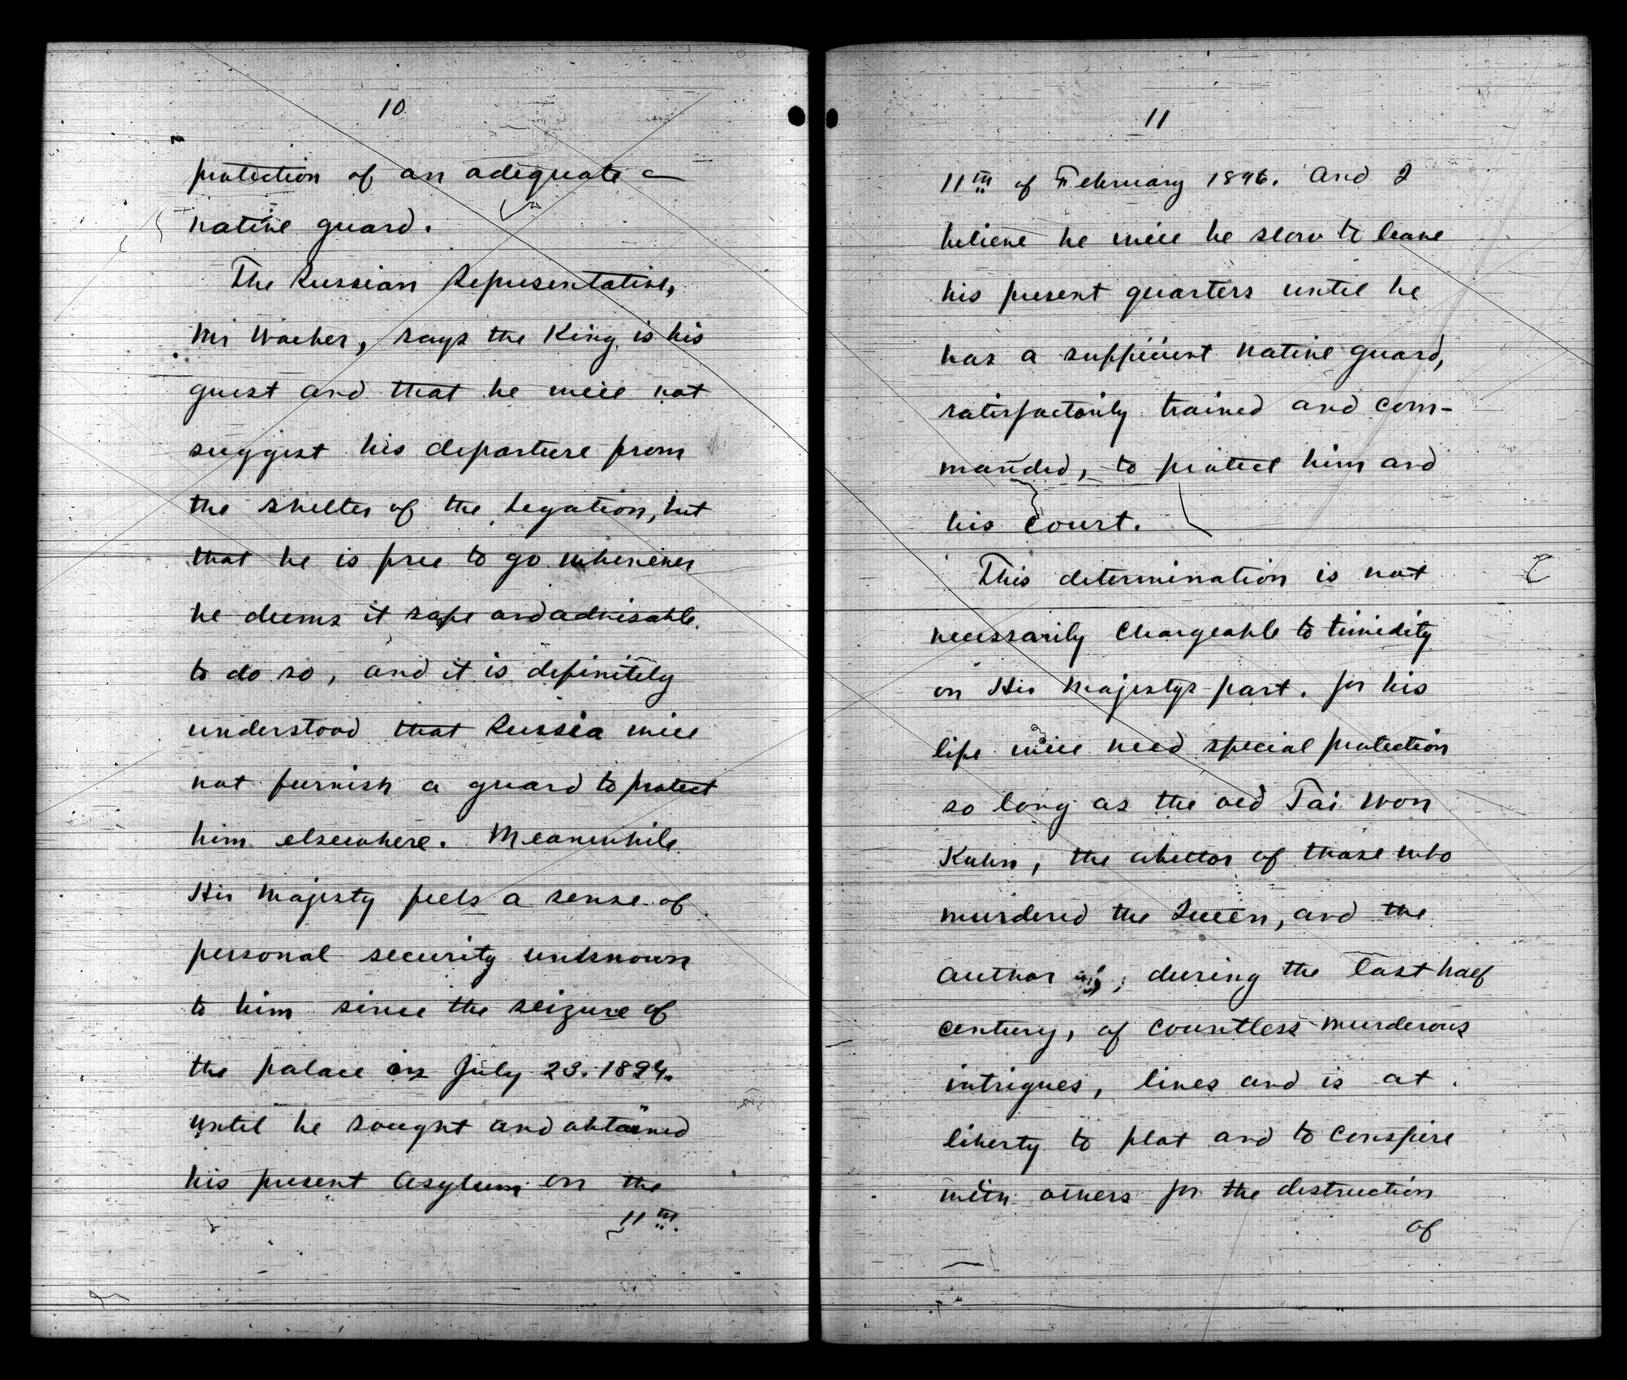 10
protection of an adequate
native guard.
The Russian Representative,
Mr Waeber, says the King is his
guest and that he will not
suggest his departure from
the shelter of the Legation, but
that he is free to go whenever
he deems it safe and advisable
to do so, and it is definitely
understood that Russia will
not furnish a guard to protect
him elsewhere. Meanwhile
His Majesty feels a sense of
personal security unknown
to him since the seizure of
the palace on July 23. 1894.
until he sought and obtained
his present asylum on the
11th.
11
11th of February 1896. And I
believe he will be slow to leave
his present quarters until he
has a sufficient native guard,
satisfactorily trained and com-
manded, to protect him and
his court.
This determination is not
necessarily chargeable to timidity
on His Majesty's part. for his
life will need special protection
so long as the old Tai Won
Kuhn, the abettor of those who
murdered the Queen, and the
author, during the last half
century, of countless murderous
intrigues, lives and is at
liberty to plot and to conspire
with others for the destruction
of